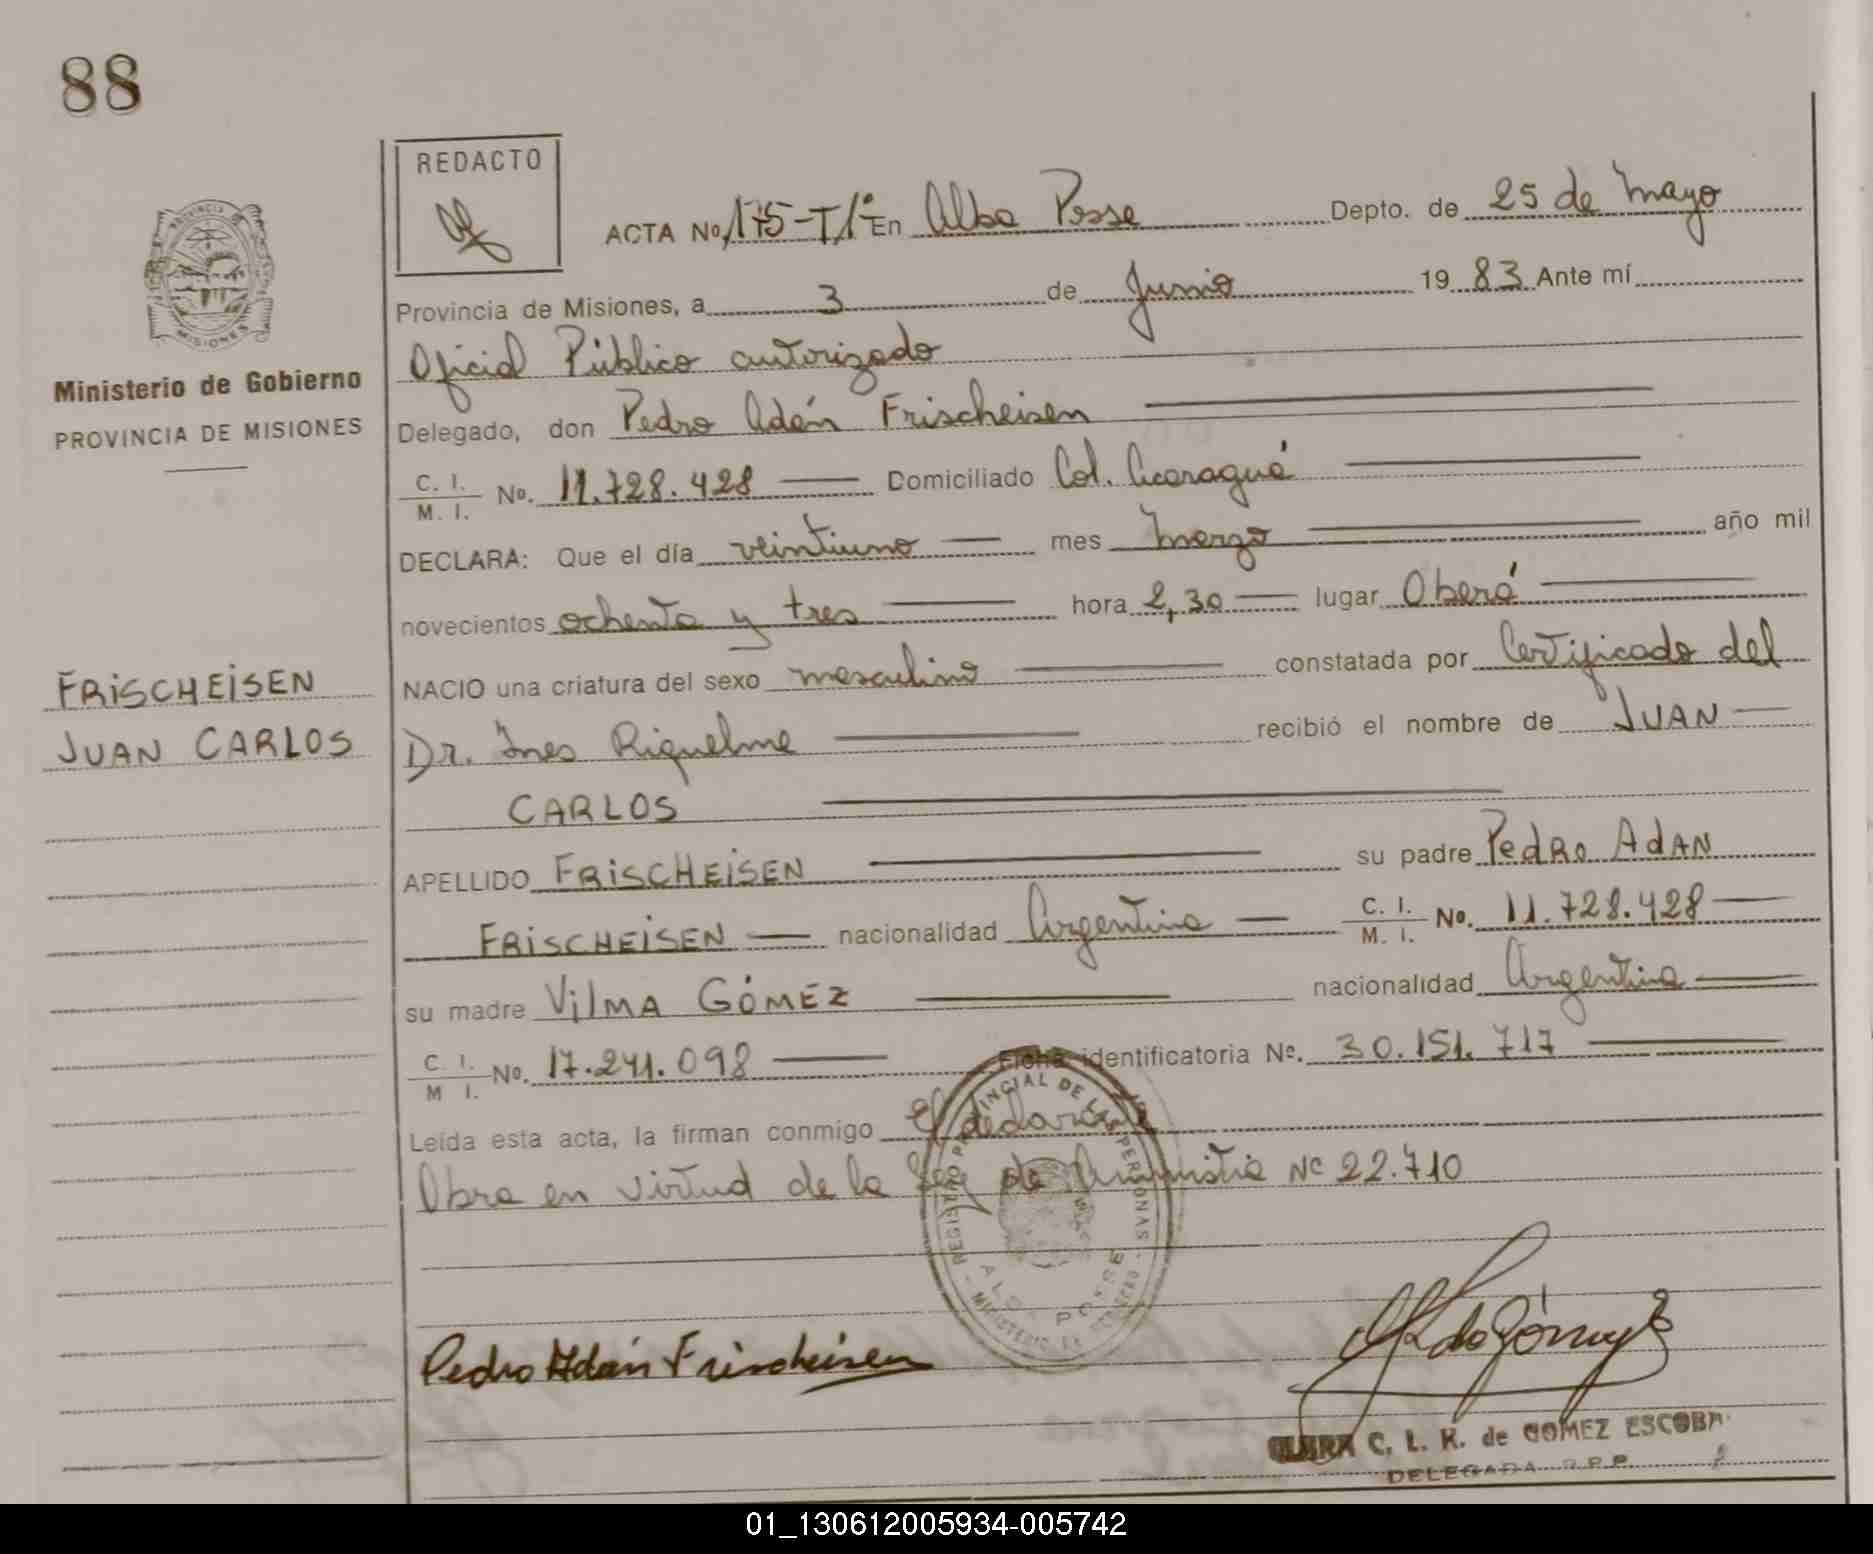 88
REDACTO
ACTA No 175-T/1º En Alba Posse Depto. de 25 de Mayo
Provincia de Misiones, a 3 de Junio 1983 Ante mí
Oficial Público autorizado
Ministerio de Gobierno
PROVINCIA DE MISIONES
Delegado, don Pedro Adán Frischeisen
C. I. / M. I. No. 11.728.428 Domiciliado Col. Acaragué
DECLARA: Que el día veintiuno mes Marzo año mil
novecientos ochenta y tres hora 2,30 lugar Oberá
FRISCHEISEN
JUAN CARLOS
NACIO una criatura del sexo masculino constatada por Certificado del
Dr. Ines Riquelme recibió el nombre de JUAN
CARLOS
APELLIDO FRISCHEISEN su padre PEDRO ADAN
FRISCHEISEN nacionalidad Argentina C. I. / M. I. No. 11.728.428
su madre VILMA GÓMEZ nacionalidad Argentina
C. I. / M I. No. 17.241.098 Ficha identificatoria No. 30.151.717
Leída esta acta, la firman conmigo el declarante
Obra en virtud de la Ley de Amnistia Nº 22.710
REGISTRO PROVINCIAL DE LAS PERSONAS - MINISTERIO DE GOBIERNO -
ALBA POSSE
MISIONES
Pedro Adán Frischeisen
C. L. K. de GOMEZ ESCOBAR
DELEGADA R.P.P.
01_130612005934-005742